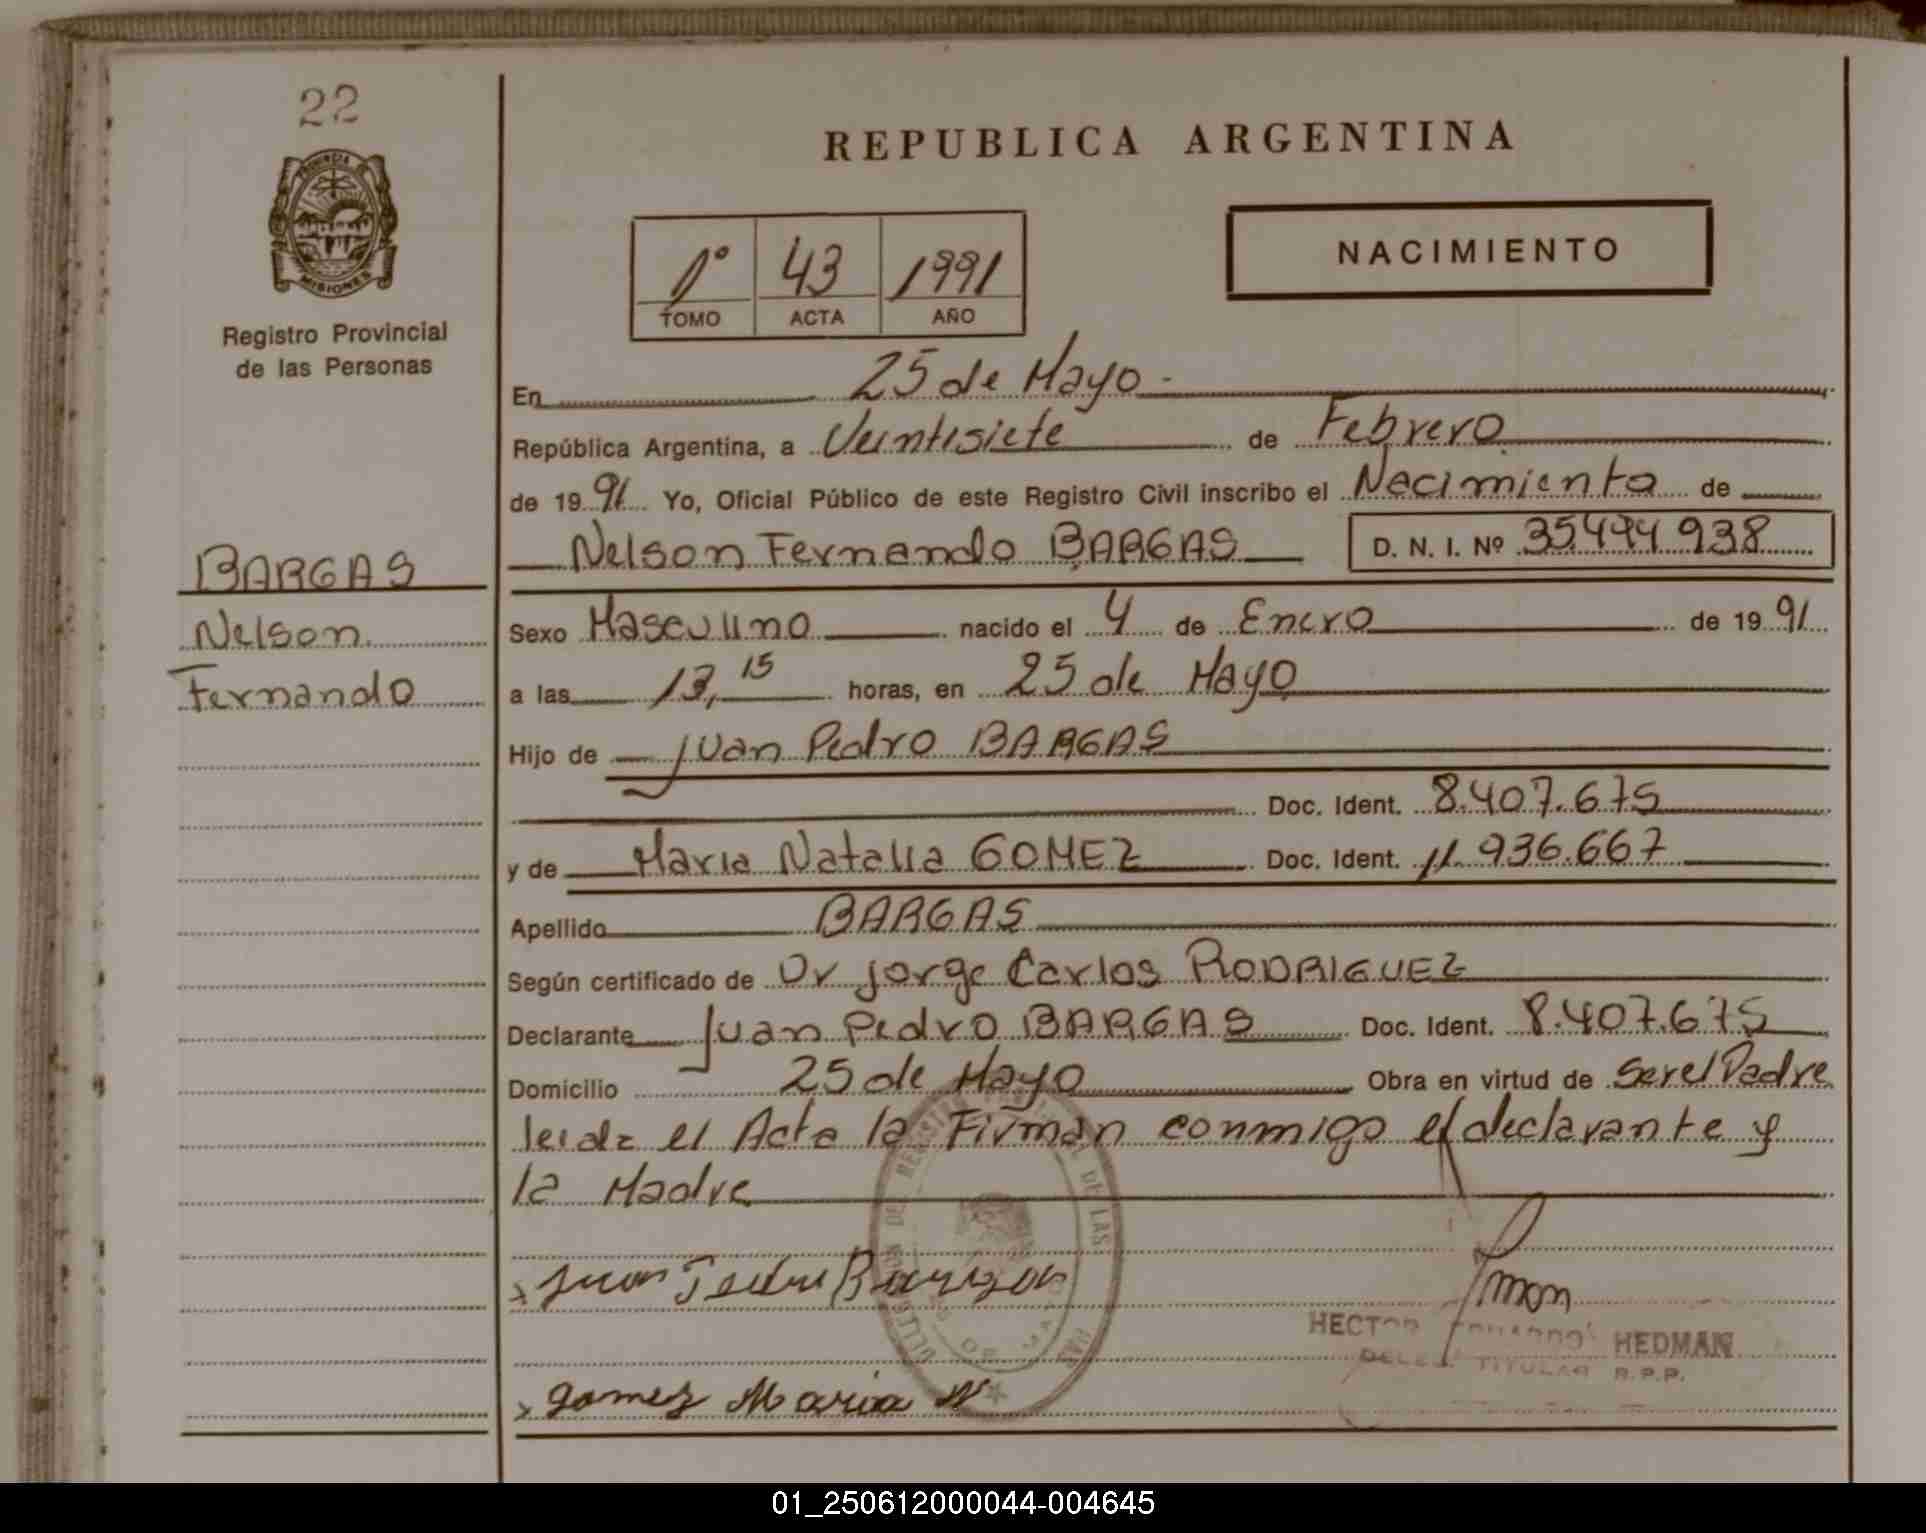 22
PROVINCIA DE
MISIONES
Registro Provincial
de las Personas
BARGAS
Nelson
Fernando
REPUBLICA ARGENTINA
1º 43 1991
TOMO ACTA AÑO
NACIMIENTO
En 25 de Mayo -
República Argentina, a Veintisiete de Febrero
de 19 91 Yo, Oficial Público de este Registro Civil inscribo el Nacimiento de
Nelson Fernando BARGAS D. N. I. Nº 35494938
Sexo Masculino nacido el 4 de Enero de 19 91
a las 13,15 horas, en 25 de Mayo
Hijo de Juan Pedro BARGAS
Doc. Ident. 8.407.675
y de Maria Natalia GOMEZ Doc. Ident. 11.936.667
Apellido BARGAS
Según certificado de Dr Jorge Carlos RODRIGUEZ
Declarante Juan Pedro BARGAS Doc. Ident. 8.407.675
Domicilio 25 de Mayo Obra en virtud de ser el Padre
leida el Acta la Firman conmigo el declarante y
la Madre
Juan Pedro Bargas
HECTOR EDUARDO HEDMAN
DELEG TITULAR R.P.P.
gomez Maria N
01_250612000044-004645